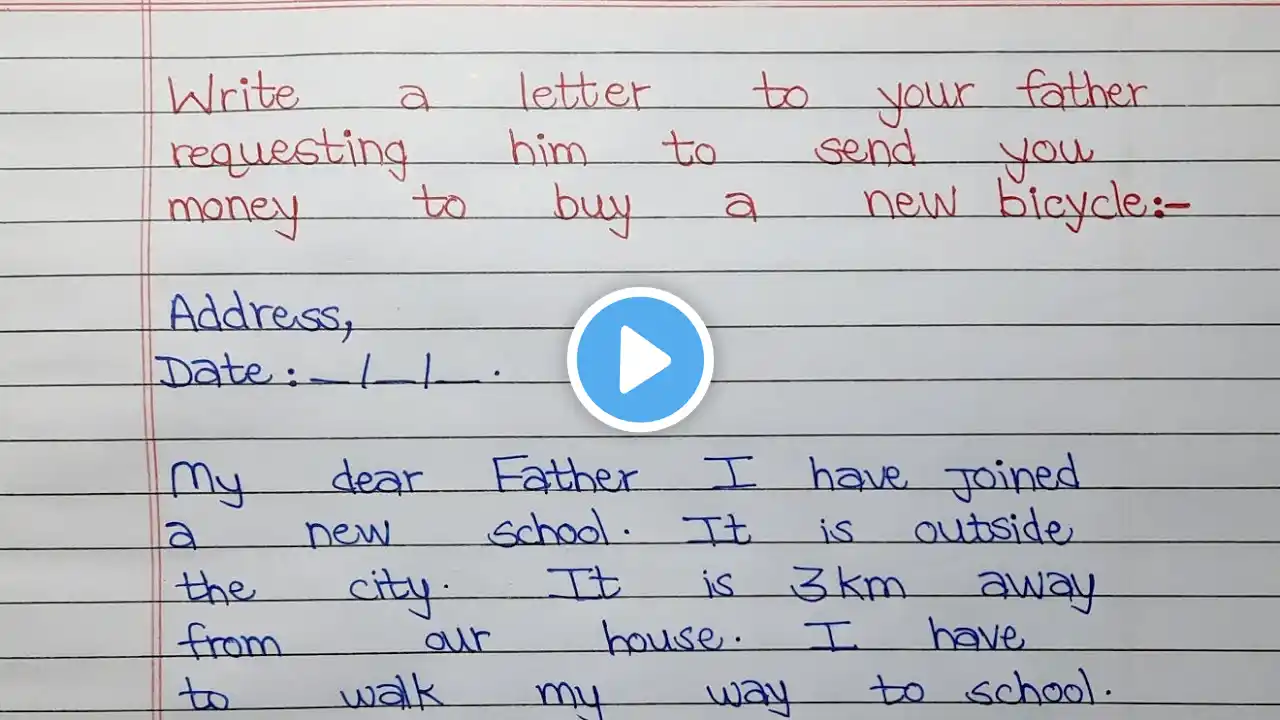 Write a letter to your father
requesting him to send you
money to buy a new bicycle:-
Address,
Date: _/_/_.
My dear Father I have Joined
a new school. It is outside
the city. It is 3km away
from our house. I have
to walk my way to school.